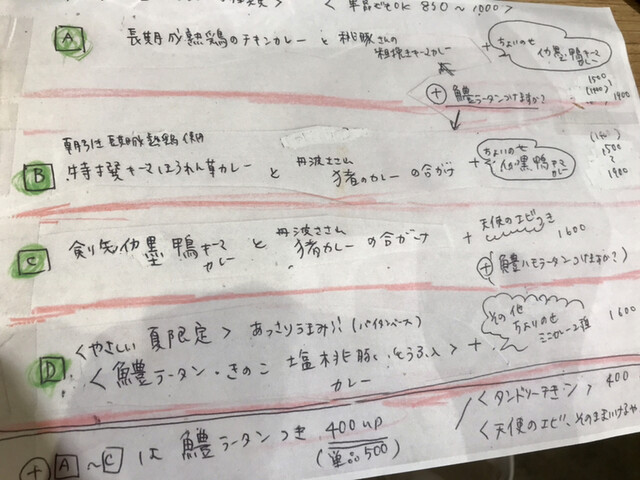 < 単品でもOK 850～1000 >
A 長期成熟鶏のチキンカレー と 桃豚さんの粗挽きキーマカレー + ちょいのせ 伽墨鴨キーマカレー
1500 (1600) 1900
⊕ 鱧ラータンつけますか?
朝引き長期成熟鶏使用
B 特挽キーマほうれん草カレー と 丹波ささ山 猪のカレー の合がけ + ちょいのせ 伽黒鴨キーマカレー
1500 ～ 1900
C 剣先 伽墨鴨キーマカレー と 丹波ささ山 猪カレー の合がけ + 天使のエビつき 1600
⊕ 鱧ハモラータンつけますか?)
D <やさしい 夏限定> あっさりうまみ!! (パイタンベース)
< 鱧ラータン・きのこ 塩桃豚 カレー > + その他 ちょいのせ ミニカレー2種 1600
⊕ A ～ C は 鱧ラータンつき 400up (単品500)
<タンドリーチキン> 400
<天使のエビ、そのまま